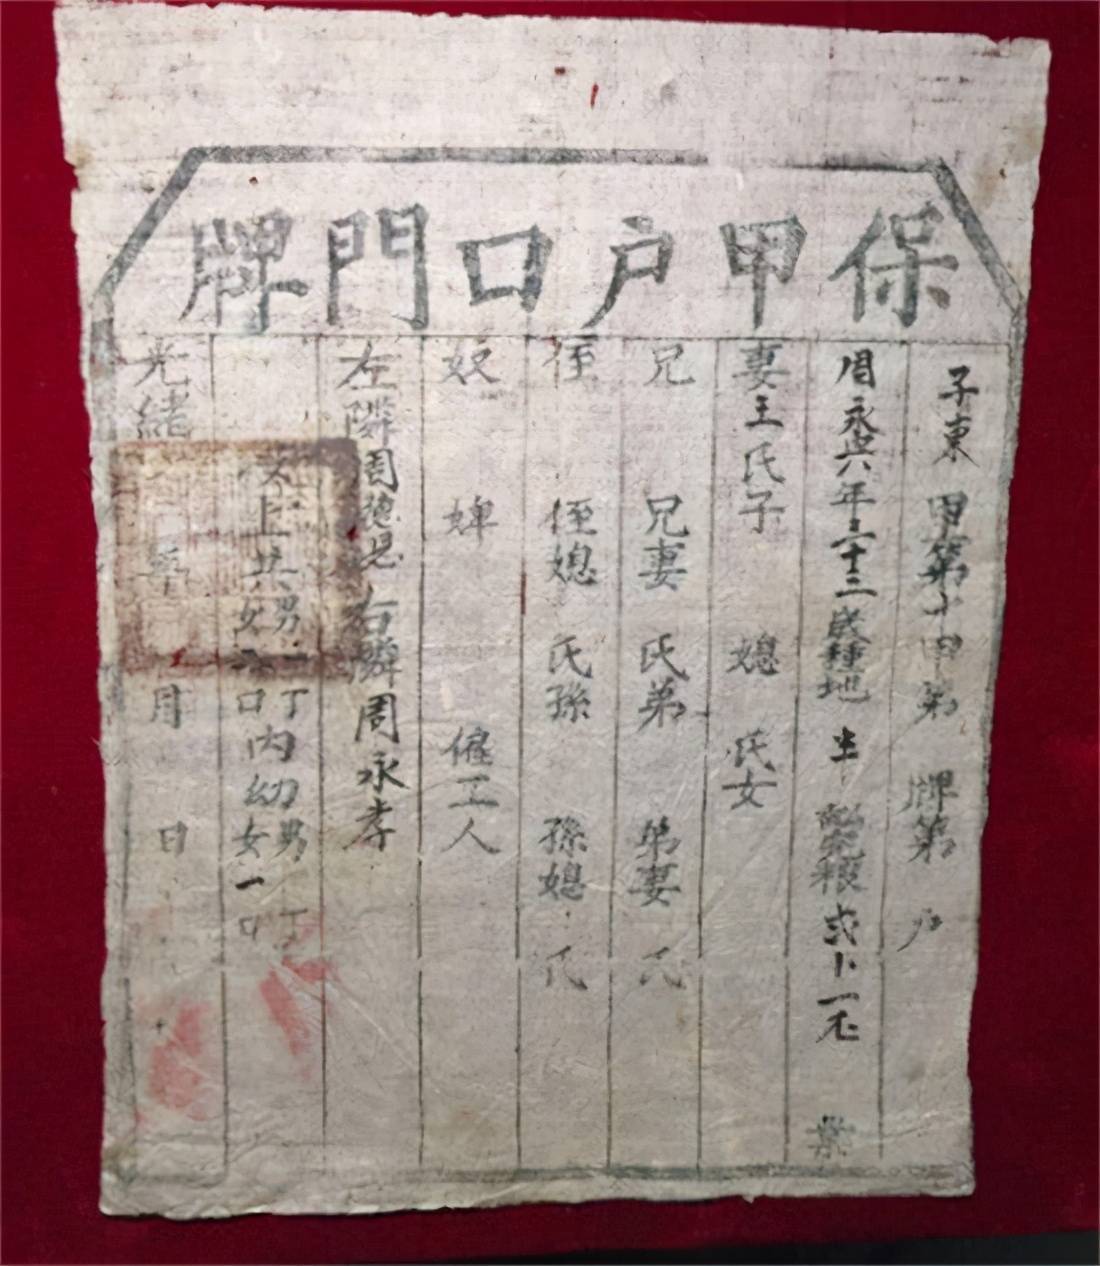 保甲戶口門牌
子東 甲第十甲第 牌第 戶
周永 年三十三歲種地 生 糧 一
妻王氏子 媳 氏女
兄 兄妻 氏弟 弟妻 氏
侄 侄媳 氏孫 孫媳 氏
奴 婢 僱工人
左隣周 右隣周永孝
以上共男一丁女 口內幼男 丁女一口
光緒 年 月 日